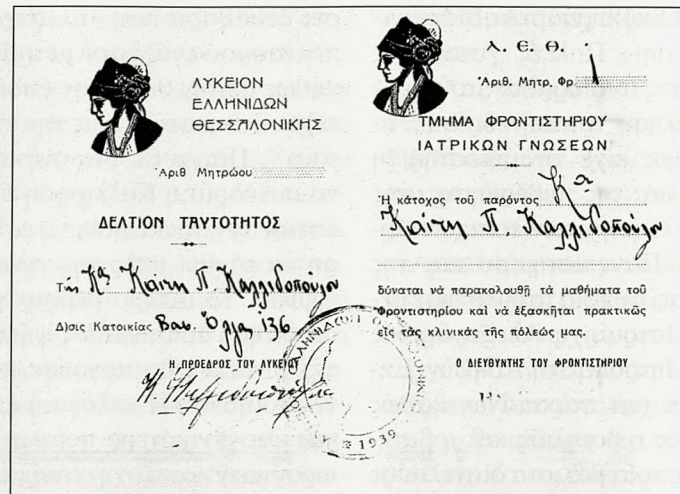 ΛΥΚΕΙΟΝ
ΕΛΛΗΝΙΔΩΝ
ΘΕΣΣΑΛΟΝΙΚΗΣ
Ἀριθ Μητρώου
ΔΕΛΤΙΟΝ ΤΑΥΤΟΤΗΤΟΣ
Τῆς Κας Καίτης Π. Καλλιδοπούλου
Δ)σις Κατοικίας Βασ. Ὄλγας 136
Η ΠΡΟΕΔΡΟΣ ΤΟΥ ΛΥΚΕΙΟΥ
1939
Λ. Ε. Θ.
Ἀριθ. Μητρ. Φρ
ΤΜΗΜΑ ΦΡΟΝΤΙΣΤΗΡΙΟΥ
ΙΑΤΡΙΚΩΝ ΓΝΩΣΕΩΝ
Ἡ κάτοχος τοῦ παρόντος Κα
Καίτη Π. Καλλιδοπούλου
δύναται νὰ παρακολουθῇ τὰ μαθήματα τοῦ
Φροντιστηρίου καὶ νὰ ἐξασκῆται πρακτικῶς
εἰς τὰς κλινικὰς τῆς πόλεώς μας.
Ο ΔΙΕΥΘΥΝΤΗΣ ΤΟΥ ΦΡΟΝΤΙΣΤΗΡΙΟΥ